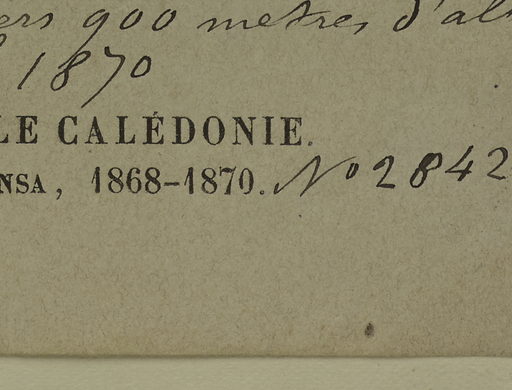 ers 900 mètres d'al
1870
LE CALÉDONIE.
NSA, 1868–1870. No 2842